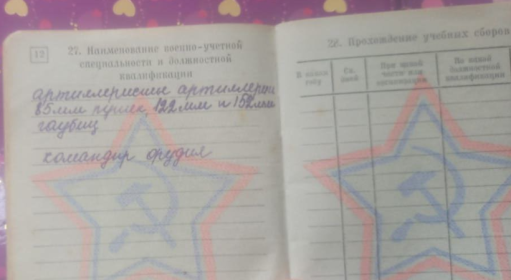 13
27. Наименование военно-учетной
специальности и должностной
квалификации
артиллерист артиллерии
85мм пушек, 122мм и 152мм
гаубиц
командир орудия
28. Прохождение учебных сборов
В каком
году
При какой
части или
По какой
должностной
квалификации